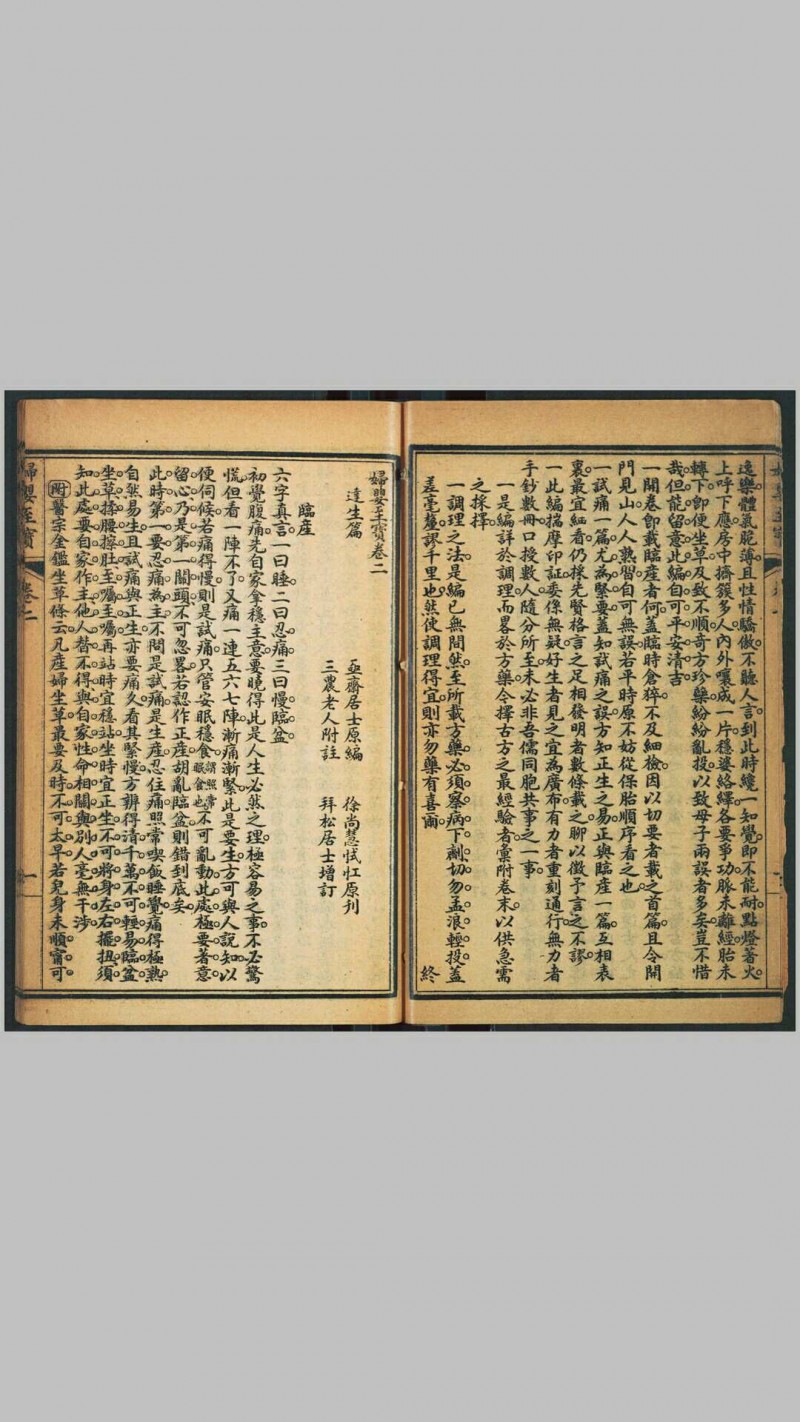 逸樂體氣脆薄且性情驕傲不聽人言到此時纔一知覺即不能耐點燈著火
上呼下應房中擠簇多人內外嚷成一片穩婆絡繹各要爭功脈未離經胎未
轉下即便坐草及致不順奇方珍藥紛紛亂投以致母子兩誤者多矣豈不惜
哉但能留意此編自可平安清吉
一開卷即載臨產者何蓋臨時倉猝不及細檢因以切要者載之首篇且令開
門見山人人熟習自可無誤若平時原不妨從保胎順序看之也
一試痛一篇尤為緊要蓋知試痛之誤方知正生之易正與臨產一篇互相表
裏最宜細看仍採先賢格言之足相發明者數條載之聊以徵予言之不謬
一此編揣摩印証委係無疑好生者見之宜為廣布有力者重刻通行無力者
手鈔數冊口授數人隨分所至未必非吾儒同胞共事之一事
一是編詳於調理而畧於方藥今擇古方之最經驗者彙附卷末以供急需
之採擇
一調理之法是編已無間然至所載方藥必須察病下劑切勿孟浪輕投蓋
差毫釐謬千里也然使調理得宜則亦勿藥有喜爾 終
婦嬰至寶卷二
達生篇
亟齋居士原編 徐尚慧忒㤚原刊
三農老人附註 拜松居士增訂
臨產
六字真言一曰睡二曰忍痛三曰慢臨盆
初覺腹痛先自家拿穩主意要曉得此是人生必然之理極容易之事不必驚
慌但看一陣不了又痛一連五六七陣漸痛漸緊此是要生方可與人說知以
便伺候若痛得慢則是試痛只管安眠穩食謂照常眠食也不可亂動此處極要著意
留心乃是第一關頭不可忽畧若認作正產胡亂臨盆則錯到底矣
此時第一要忍痛為主不問是試痛是生產忍住痛照常喫飯睡覺痛得極熟
自然易生且試痛與正生亦要痛久看其緊慢方辨得清千萬不可輕易臨盆
坐草揉腰擦肚至囑至囑再站時宜穩站坐時宜正坐不可將身左右擺扭須
知此處要自家作主他人替不得與自家性命相關與別人毫無干涉
附醫宗金鑑坐草條云凡產婦坐草最要及時不可太早若兒身未順甯可
婦嬰至寶 卷二 一